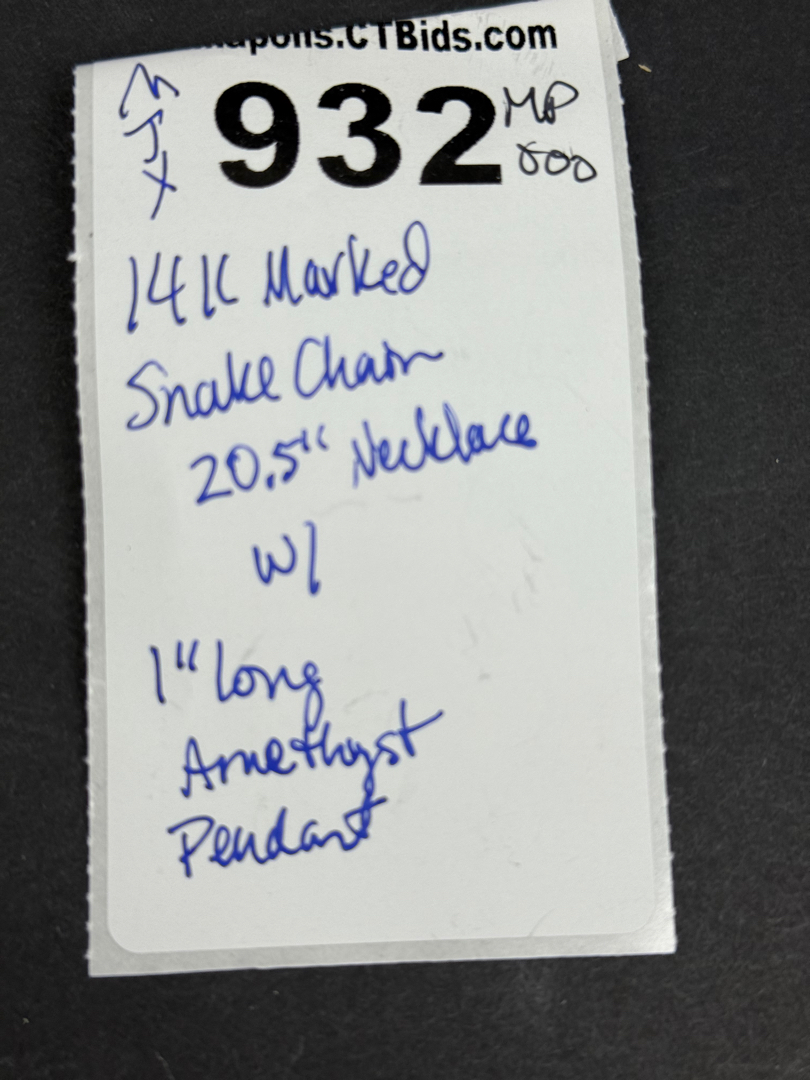 .CTBids.com
932
MP
14K Marked
Snake Chain
20.5" Necklace
W/
1" Long
Amethyst
Pendant